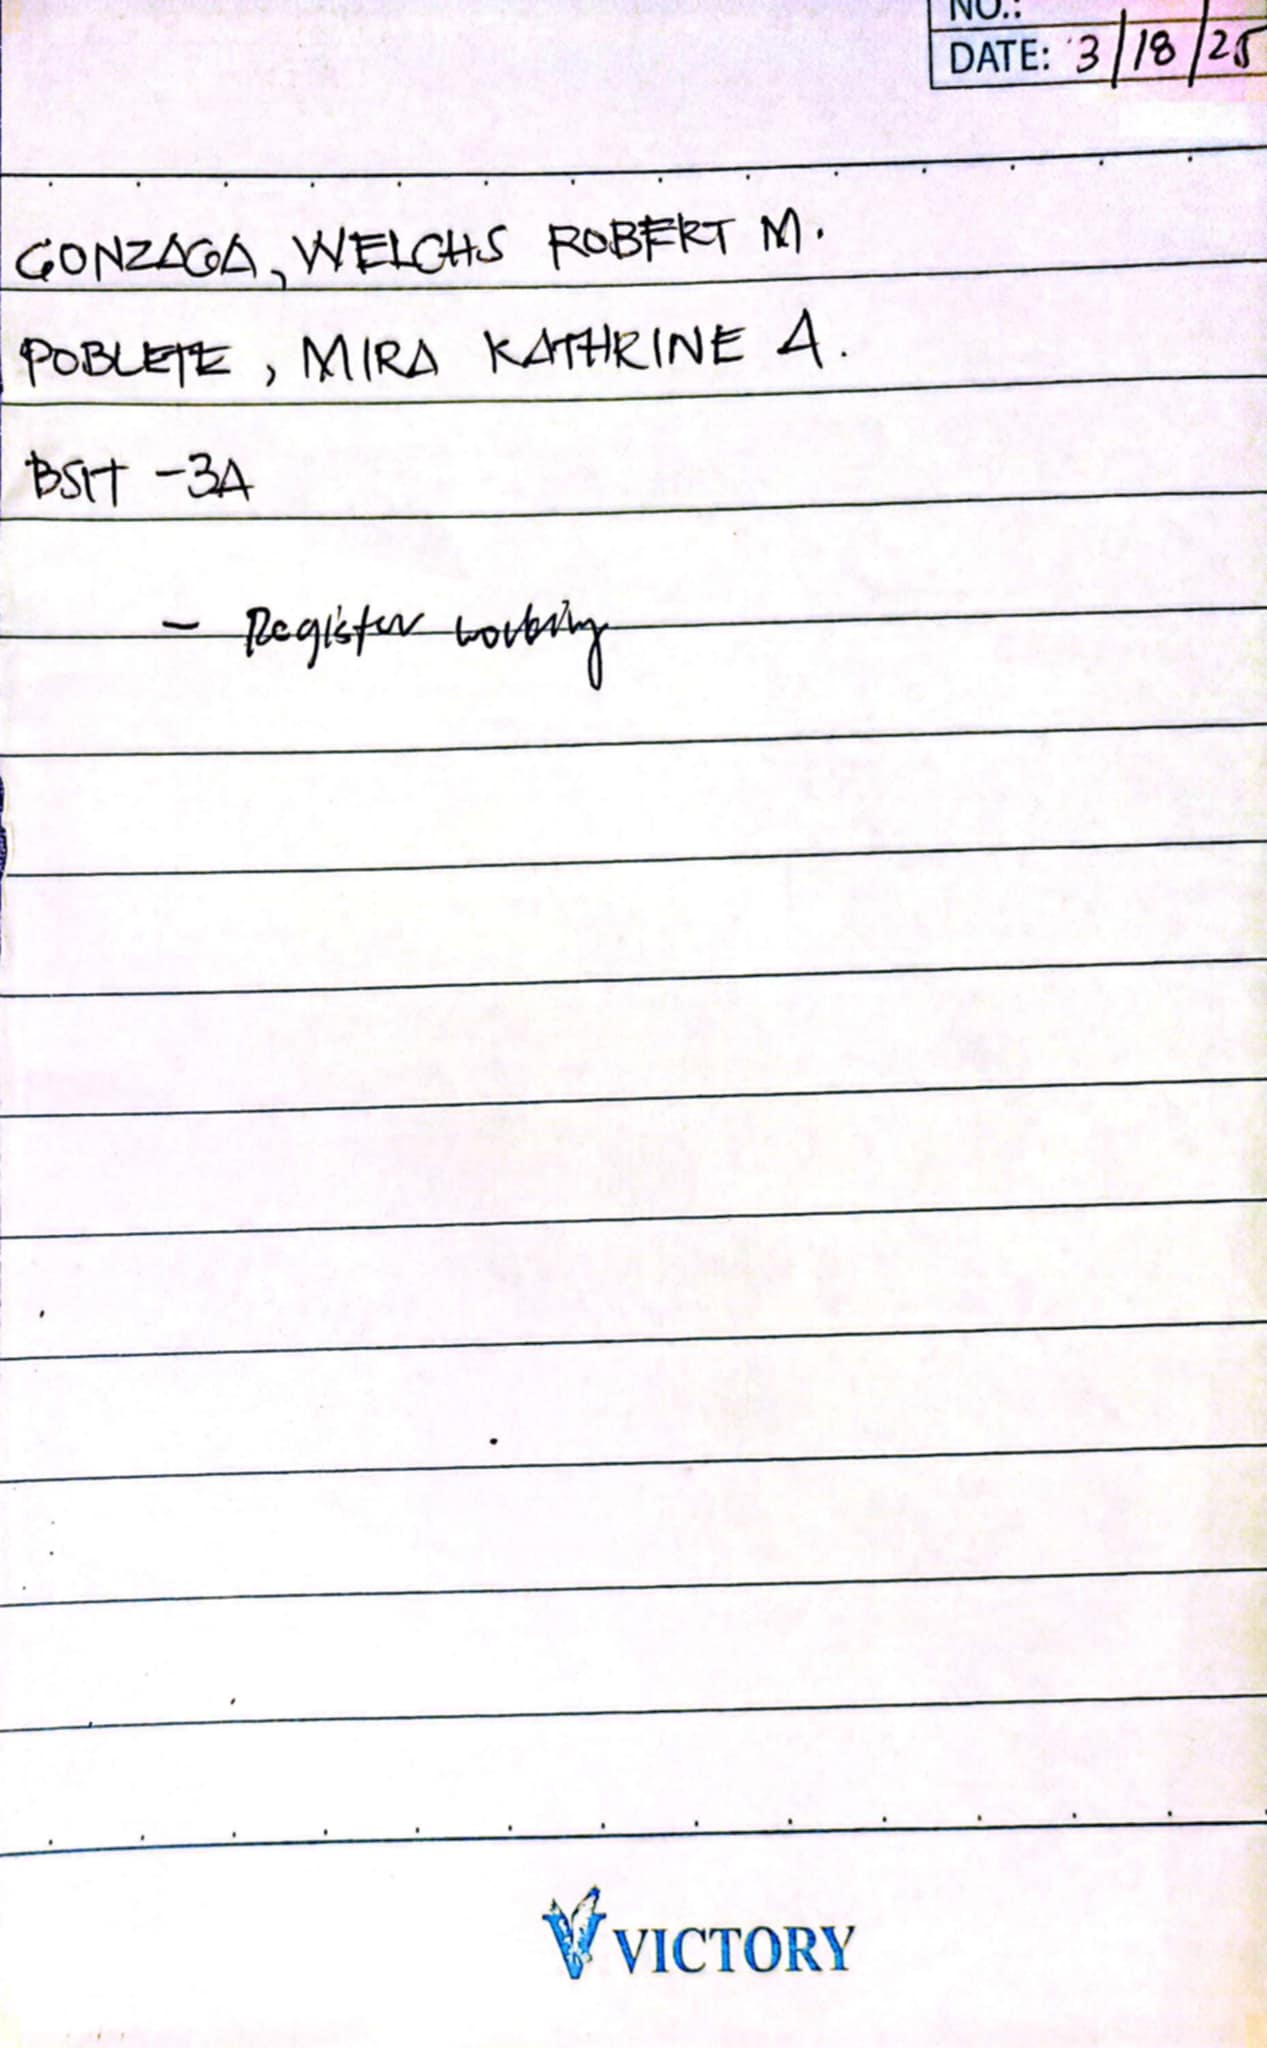 NO.:
DATE: 3/18/25
GONZAGA, WELCHS ROBERT M.
POBLETE, MIRA KATHRINE A.
BSIT -3A
- Register working
VICTORY